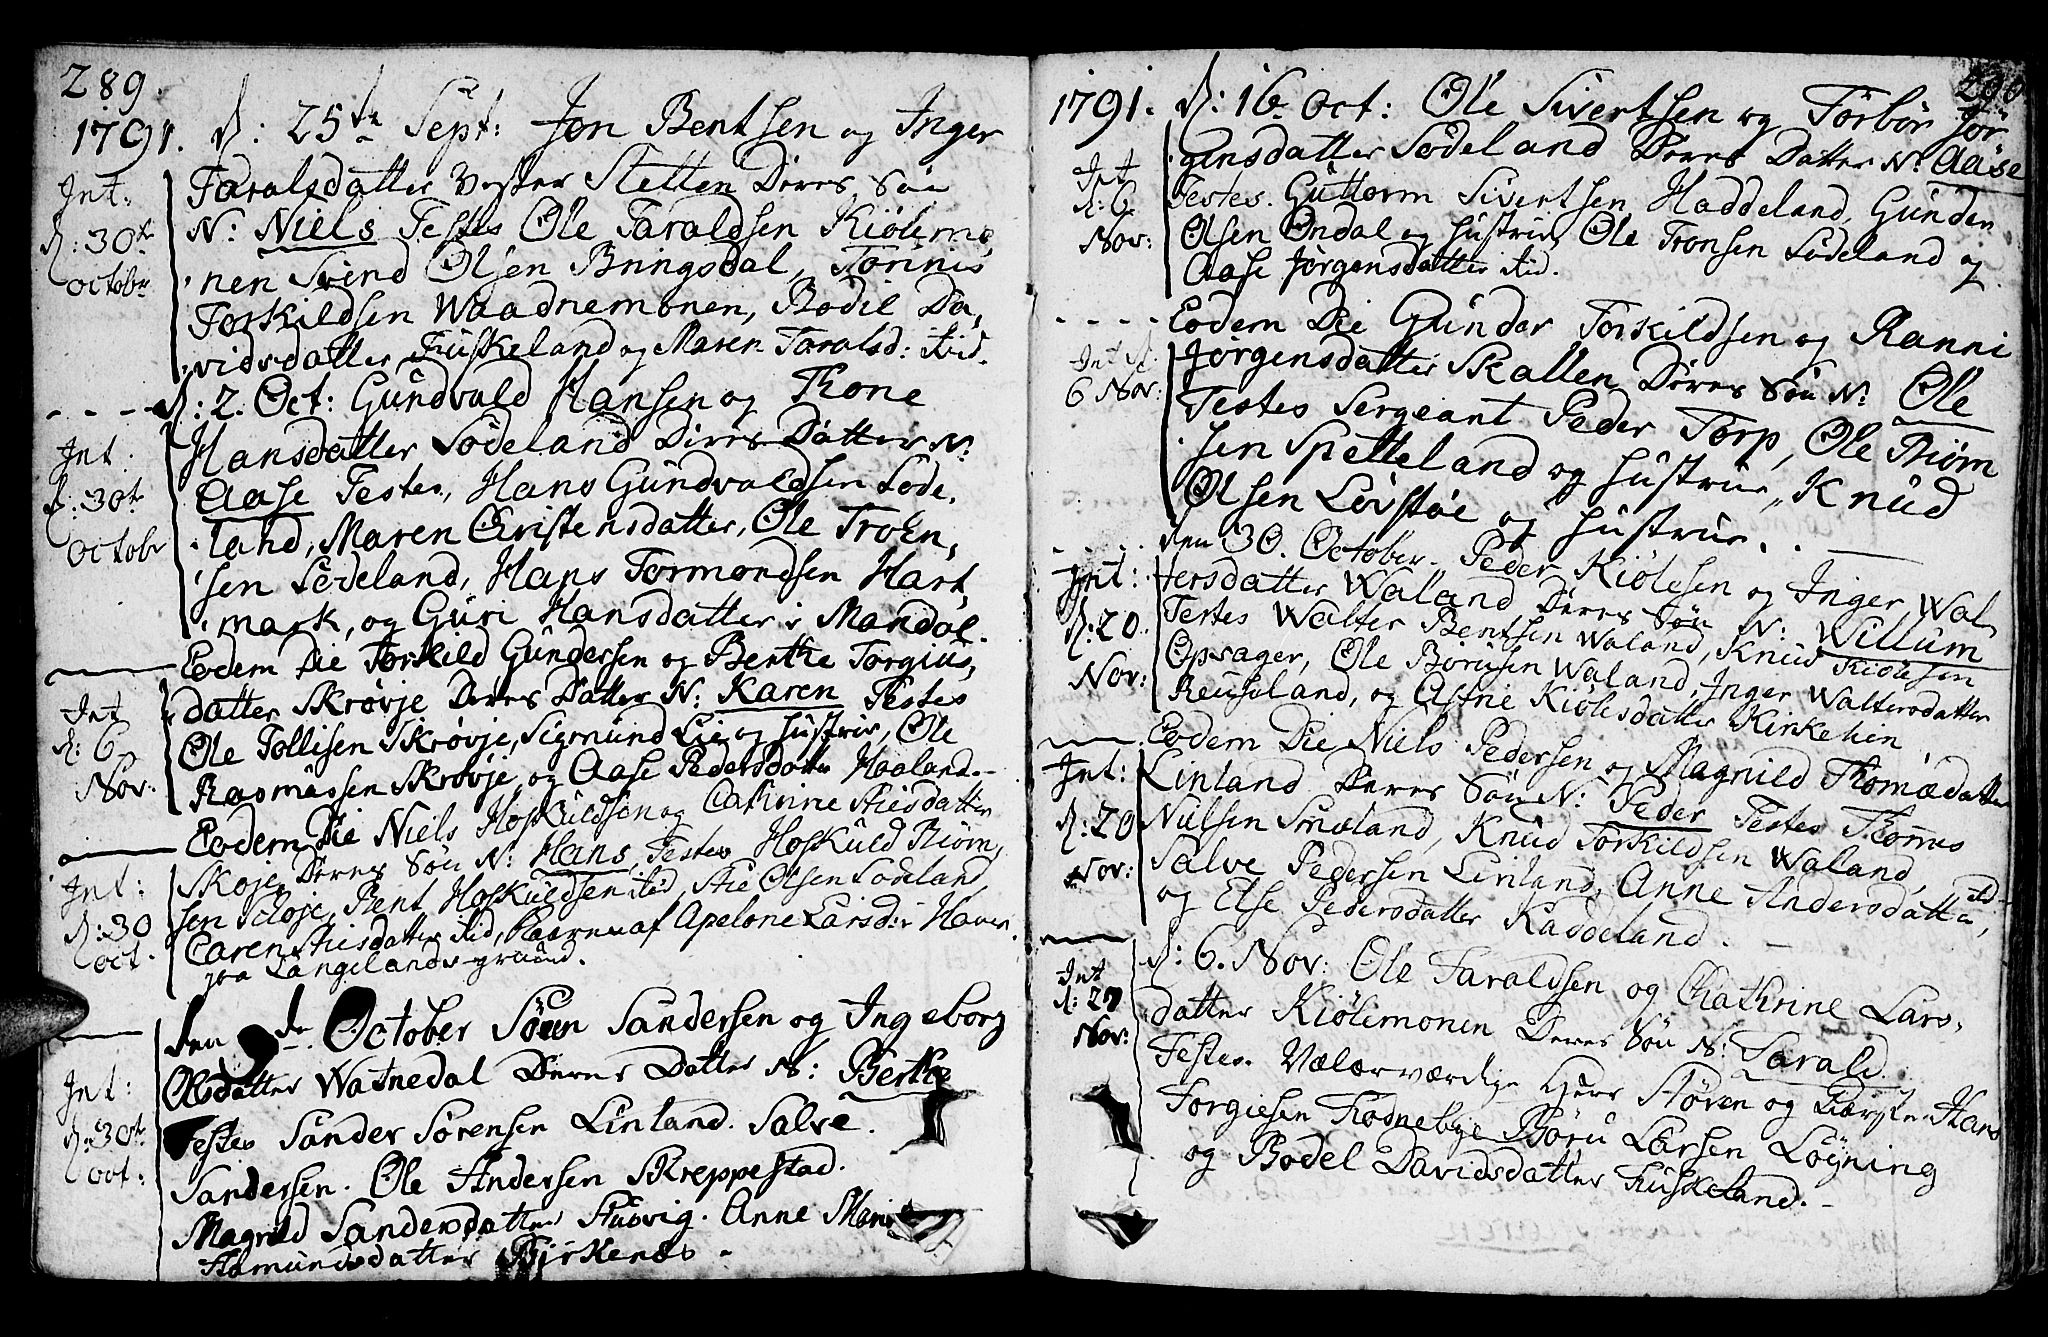 289.
1791. d: 25te Sept: Jon Bentsen og Inger
Taralsdatter Vester Sletten Deres Søn
N: Niels Testes Ole Taraldsen Kiølemo
nen Svend Olsen Bringsdal, Tønnis
Torkildsen Waadnemonen, Bodil Da,
vidsdatter Fuskeland og Maren Taralsd: ibid.
Int:
d: 30te
octobr
d: 2. Oct: Gundvald Hansen og Thone
Hansdatter Södeland Deres Datter N:
Aase Testes, Hans Gundvaldsen Söde,
land, Maren Christensdatter, Ole Troen,
sen Södeland, Hans Tormondsen Hart,
mark, og Guri Hansdatter i Mandal.
Int.
d: 30te
Octobr
Eodem Die Torkild Gundersen og Berthe Torgius,
datter Skrøvje Deres Datter N: Karen Testes
Ole Tollisen Skrøvje, Sigmund Lie og Hustrue, Ole
Rasmussen Skrøvje, og Aase Pedersdatter Haaland.
Int
d: 6
Nov:
Eodem Die Niels Hoskuldsen og Cathrine Stiesdatter
Skøje Deres Søn N: Hans, Testes Hoskuld Biørn,
sen Skøje, Bent Hoskuldsen ibid, Stie Olsen Södeland,
Caren Stiesdatter ibid, Baaren af Apelone Larsd: Haver
fra Langelands-grund.
Int:
d: 30
oct.
den 9de October Sören Sandersen og Ingeborg
Olsdatter Watnedal Deres Datter N: Berthe
Testes Sander Sørensen Linland. Salve
Sandersen. Ole Andersen Skreppestad.
Magnild Sandersdatter Stusvig. Anne Marie
Aamundsdatter Birkenes.
Int:
d: 30te
oct:
290
1791. d: 16. Oct: Ole Sivertsen og Torbør Jör
gensdatter Södeland Deres Datter N: Aase
Testes. Guttorm Sivertsen Haddeland, Gunder
Olsen Öndal og Hustrue, Ole Tronsen Södeland og
Aase Jörgensdatter ibid.
Int
d: 6
Nov:
Eodem Die Gunder Torkildsen og Ranni
Jörgensdatter Skallen Deres Søn N: Ole
Testes Sergeant Peder Torp, Ole Biørn
sen Spetteland og Hustrue, Knud
Olsen Lövstöe og Hustrue.
Int d.
6 Nov:
den 30. October. Peder Kiölesen og Inger Wal,
tersdatter Waland Deres Søn N: Willum
Testes Walter Bentsen Waland, Knud Kiölesen
Opsager, Ole Börusen Waland, Inger Waltersdatter
Reusoland, og Astrie Kiölesdatter Kirkehei.
Int:
d: 20.
Nov:
Eodem Die Niels Pedersen og Magnild Thomædatter
Linland Deres Søn N: Peder Testes Thomes
Nielsen Smæland, Knud Torkildsen Waland,
Salve Pedersen Linland, Anne Andersdatter ibid,
og Else Pedersdatter Kaddeland.
Int:
d: 20
Nov:
d: 6. Nov: Ole Taraldsen og Chathrine Lars,
datter Kiölemonen Deres Søn N: Tarald.
Testes. Vælærværdige Herr Støren og Kiæreste Hans
Torgiesen Rodnebye Böru Larsen Löyning
og Bodel Davidsdatter Fuskeland.
Int
d: 27
Nov: